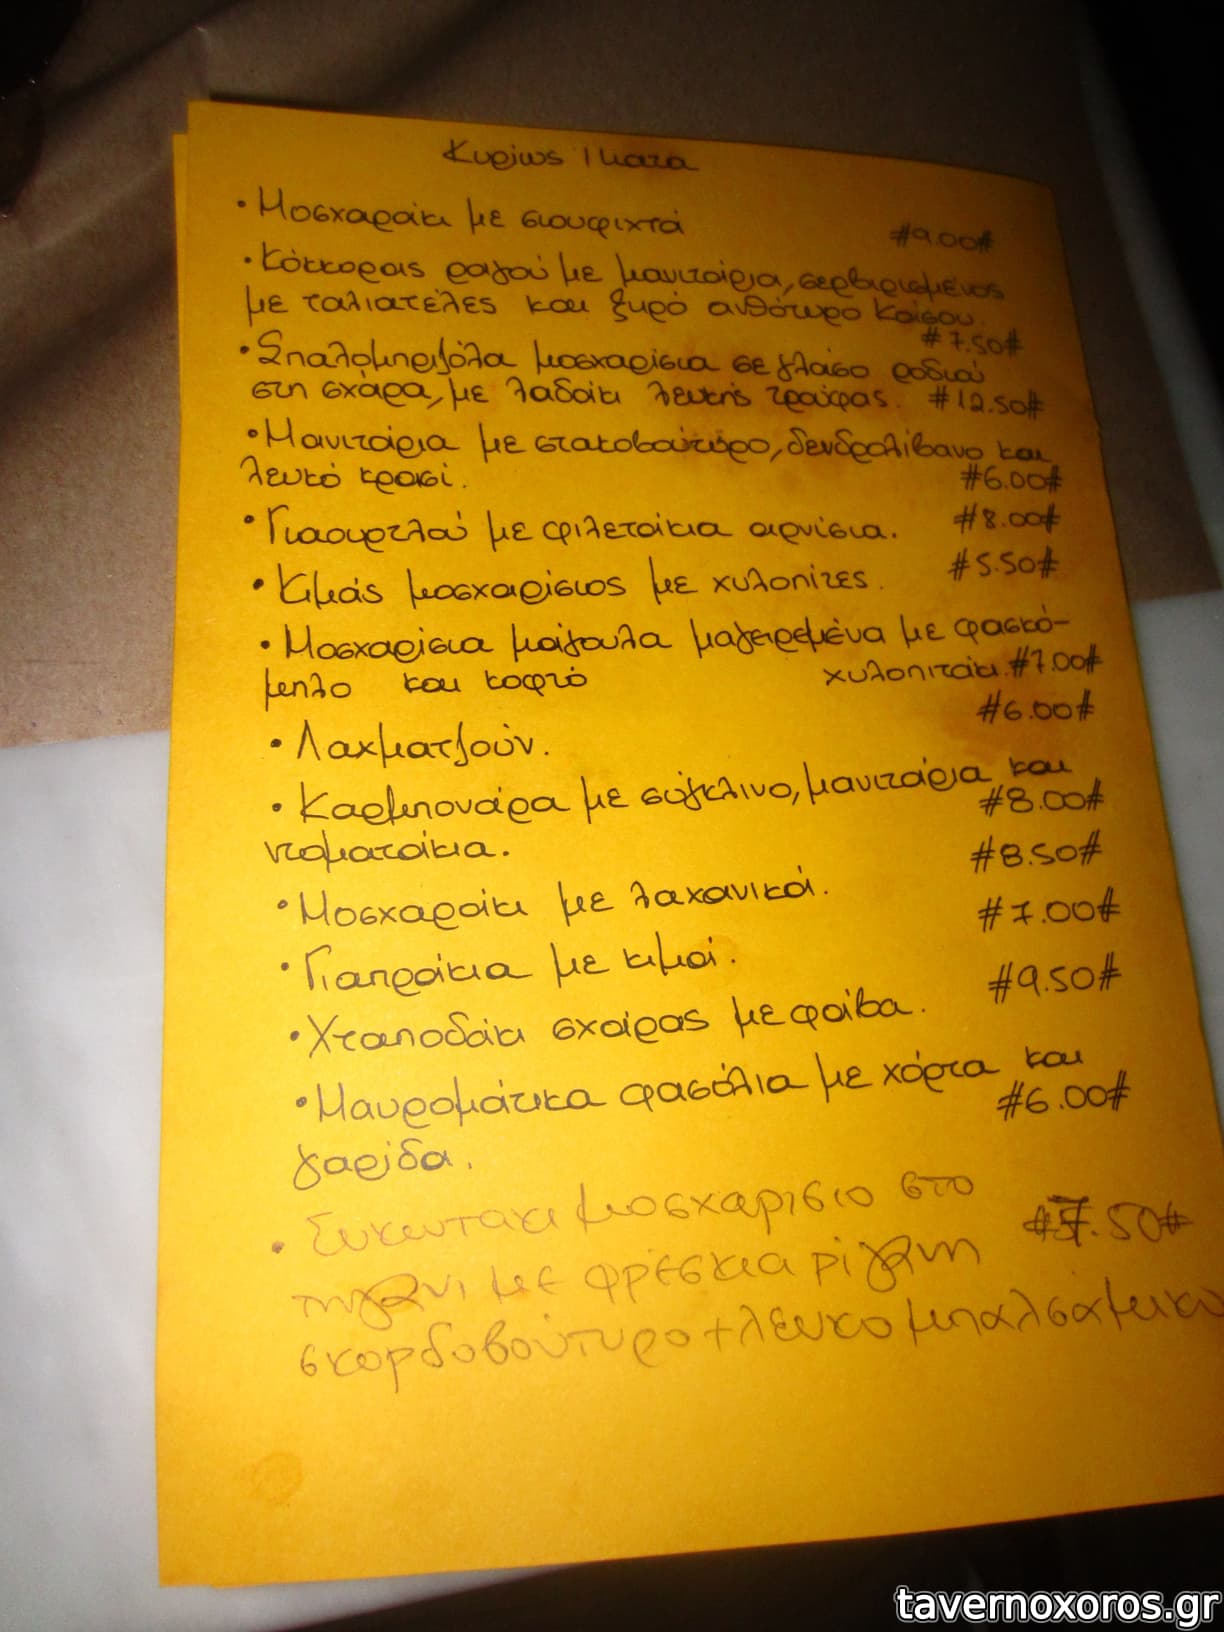 Κυρίως Πιατα
• Μοσχαράκι με σιουφιχτά #9.00#
• Κόκκορας ραγού με μανιτάρια, σερβιρισμένος
με ταλιατέλες και ξηρό ανθότυρο Καΐσου.
#7.50#
• Σπαλομπριζόλα μοσχαρίσια σε γλάσο ροδιού
στη σχάρα, με λαδάκι λευκής τρούφας. #12.50#
• Μανιτάρια με στακοβούτυρο, δενδρολίβανο και
λευκό κρασί. #6.00#
• Γιαουρτλού με φιλετάκια αρνίσια. #8.00#
• Κιμάς μοσχαρίσιος με χυλοπίτες. #5.50#
• Μοσχαρίσια μάγουλα μαγειρεμένα με φασκό-
μηλο και κοφτό χυλοπιτάκι. #7.00#
• Λαχματζούν. #6.00#
• Καρμπονάρα με σύγκλινο, μανιτάρια και
ντοματάκια. #8.00#
• Μοσχαράκι με λαχανικά. #8.50#
• Γιαπράκια με κιμά. #7.00#
• Χταποδάκι σχάρας με φάβα. #9.50#
• Μαυρομάτικα φασόλια με χόρτα και
γαρίδα. #6.00#
• Συκωτακι μοσχαρισιο στο
τηγανι με φρέσκια ρίγανη #7.50#
σκορδοβούτυρο + λευκο μπαλσάμικο
tavernoxoros.gr